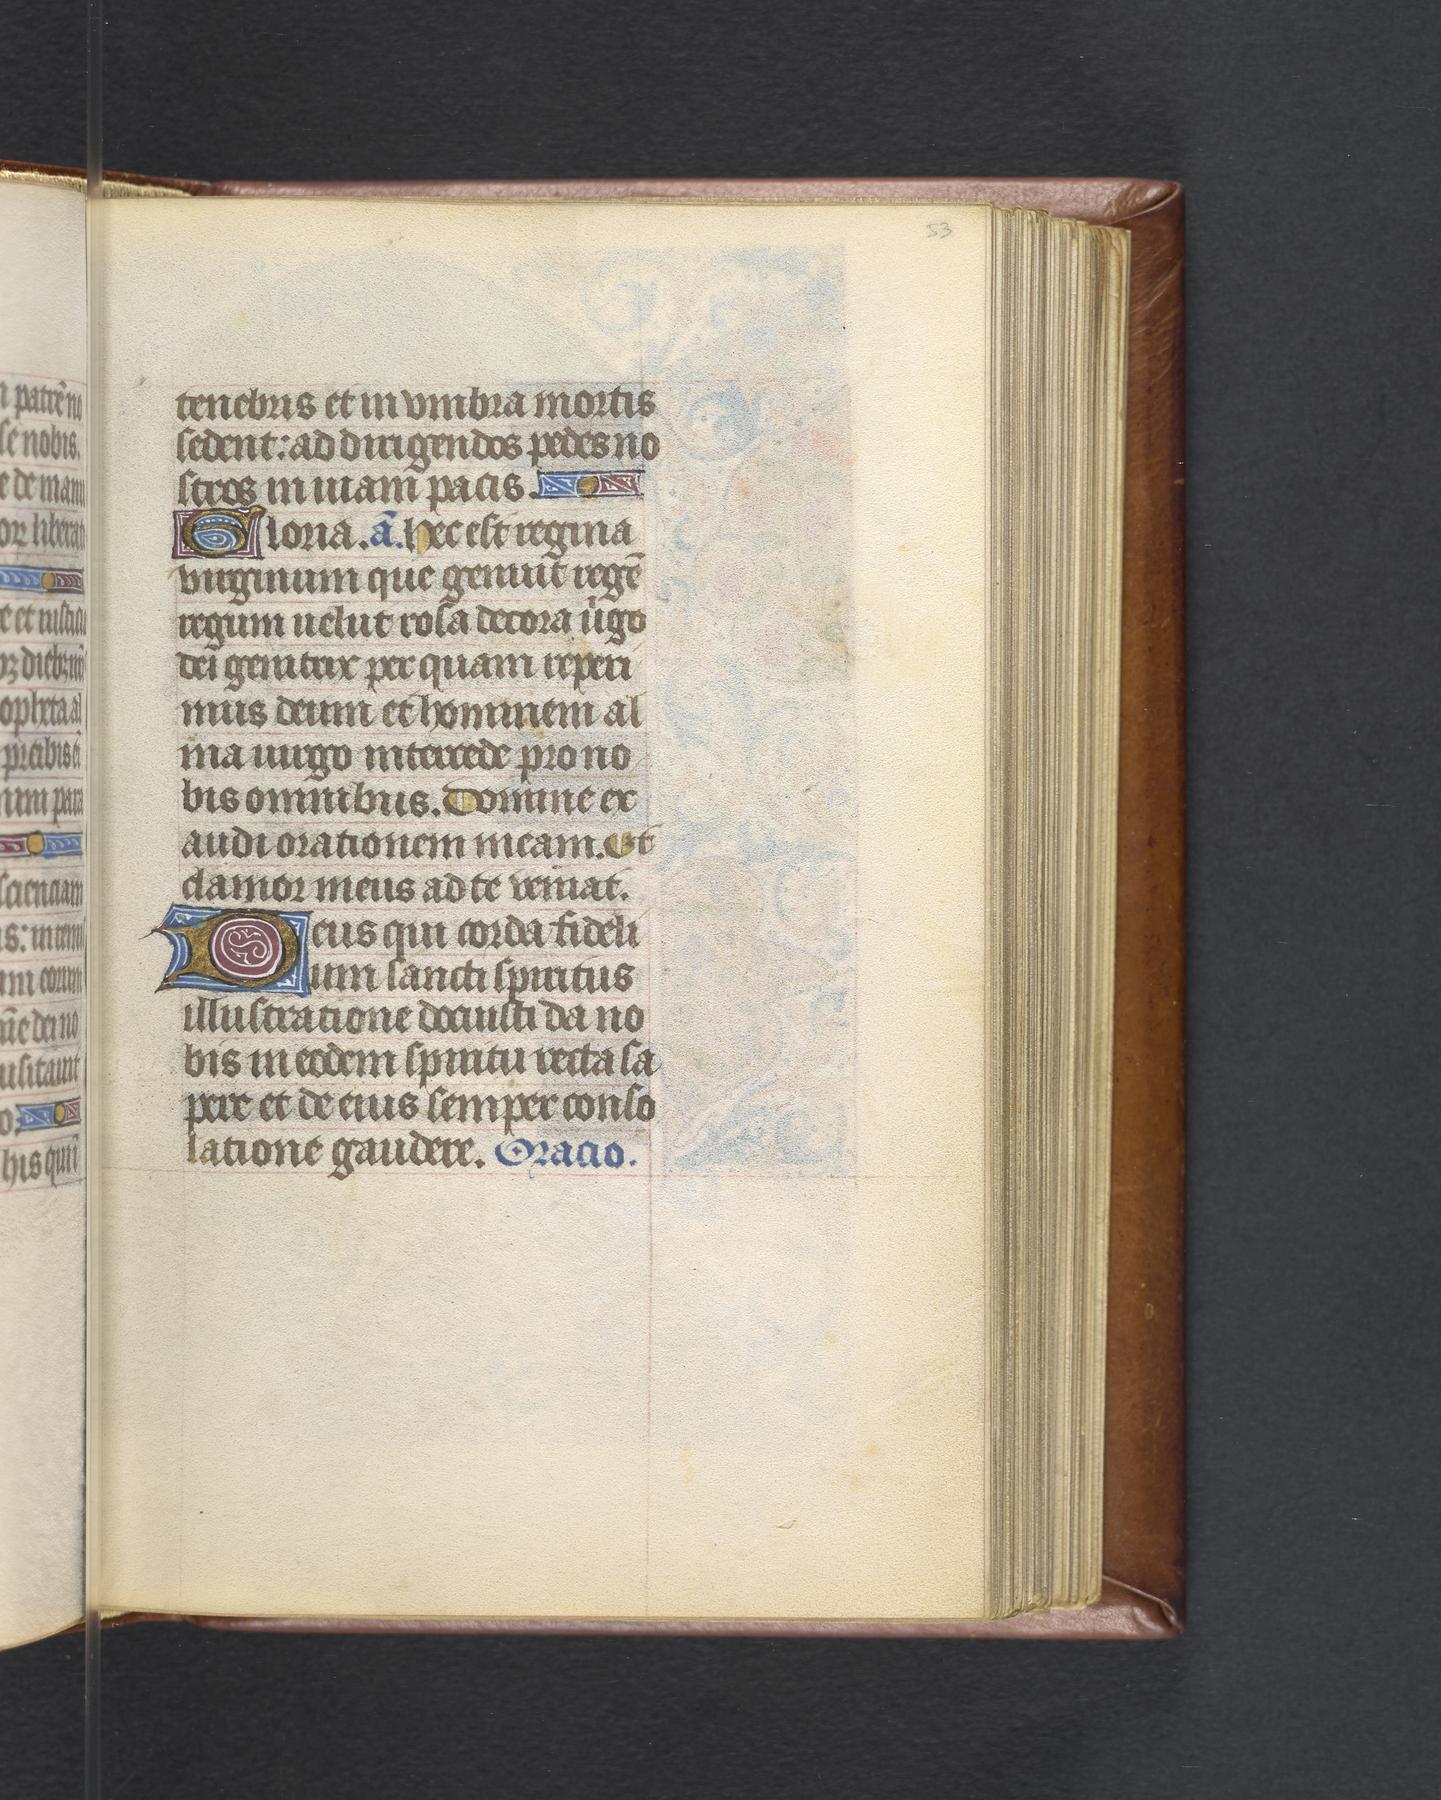 53
tenebris et in vmbra mortis
sedent: ad dirigendos pedes no
stros in uiam pacis.
Gloria. ā. hec est regina
virginum que genuit regē
regum uelut rosa decora uı̇go
dei genitrix per quam reperi
mus deum et hominem al
ma uirgo intercede pro no
bis omnibus. Domine ex
audi orationem meam. Et
clamor meus ad te veniat.
Deus qui corda fideli
um sancti spiritus
illustratione docuisti da no
bis in eodem spiritu recta sa
pere et de eius semper conso
latione gaudere. Oracio.
patrē no
se nobis.
e de manu
or liberat
e et iusticia
ophēta al
ım para
scienciam
his qui ı̄